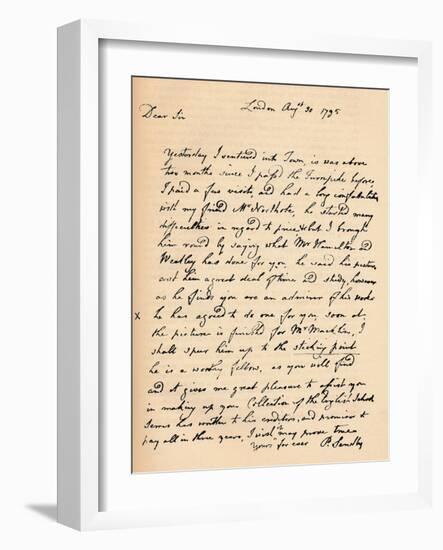 London Augt 30 1795
Dear Sir
Yesterday I ventured into Town, it was above
two months since I passd the Turnpike before,
I paid a few visits and had a long
with my friend Mr Northcote, he started many
difficulties in regard to price &c but I brought
him round by saying what Mr Hamilton and
Weatley has done for you, he said his pictures
cost him a great deal of time and study, however
as he finds you are an admirer of his works
x he has agreed to do one for you, soon as
the picture is finished for Mr Macklin, I
shall spur him up to the sticking point
he is a worthy fellow, as you will find
and it gives me great pleasure to assist you
in making up your Collection of the English School
has written to his creditors, and promises to
pay all in three years, I wish it may prove true
Yours for ever P. Sandby